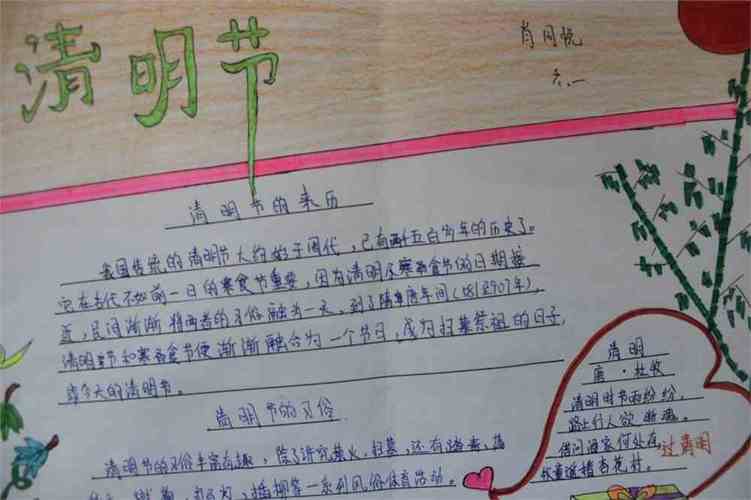 清明节
肖月悦
六.一
清明节的来历
我国传统的清明节大约始于周代，已有两千五百多年的历史了。
它在古代不如前一日的寒食节重要，因为清明及寒食节的日期接
近，民间渐渐将两者的习俗融为一天，到了隋唐年间（
清明节和寒食节便渐渐融合为一个节日，成为扫墓祭祖的日子，
即今天的清明节。
清明节的习俗
清明节的习俗丰富有趣，除了讲究禁火、扫墓，还有踏青、
插柳等一系列风俗体育活动。
清明
唐·杜牧
清明时节雨纷纷，
路上行人欲断魂。
借问酒家何处在，
牧童遥指杏花村。
过清明